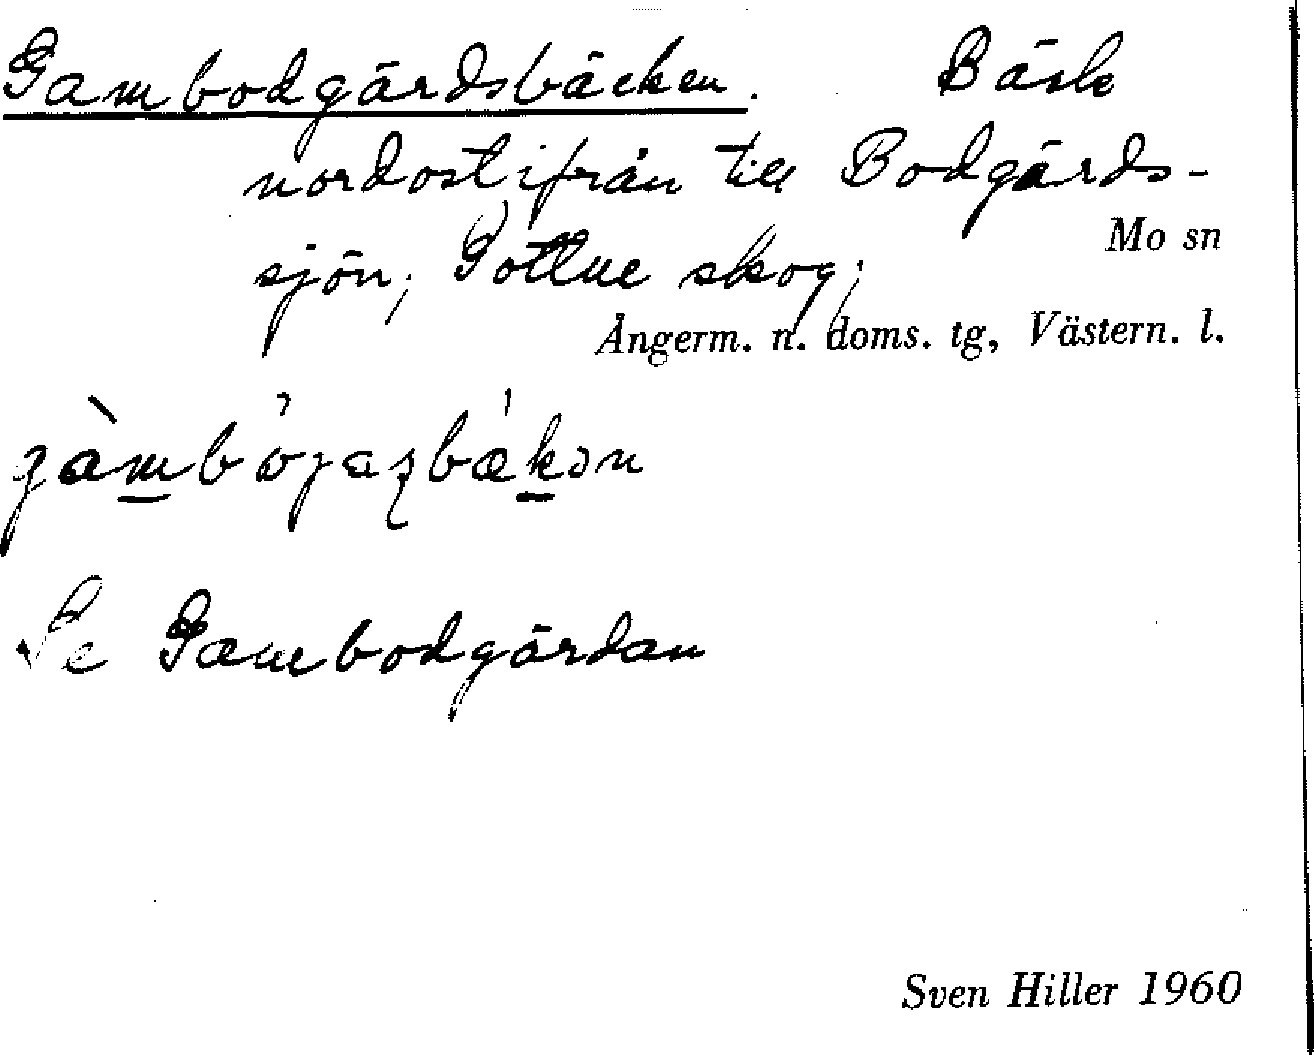 Gambodgärdsbäcken. Bäck
nordostifrån till Bodgärds-
sjön; Gottne skog;
Mo sn
Ångerm. n. doms. tg, Västern. l.
Se Gambodgärdan
Sven Hiller 1960